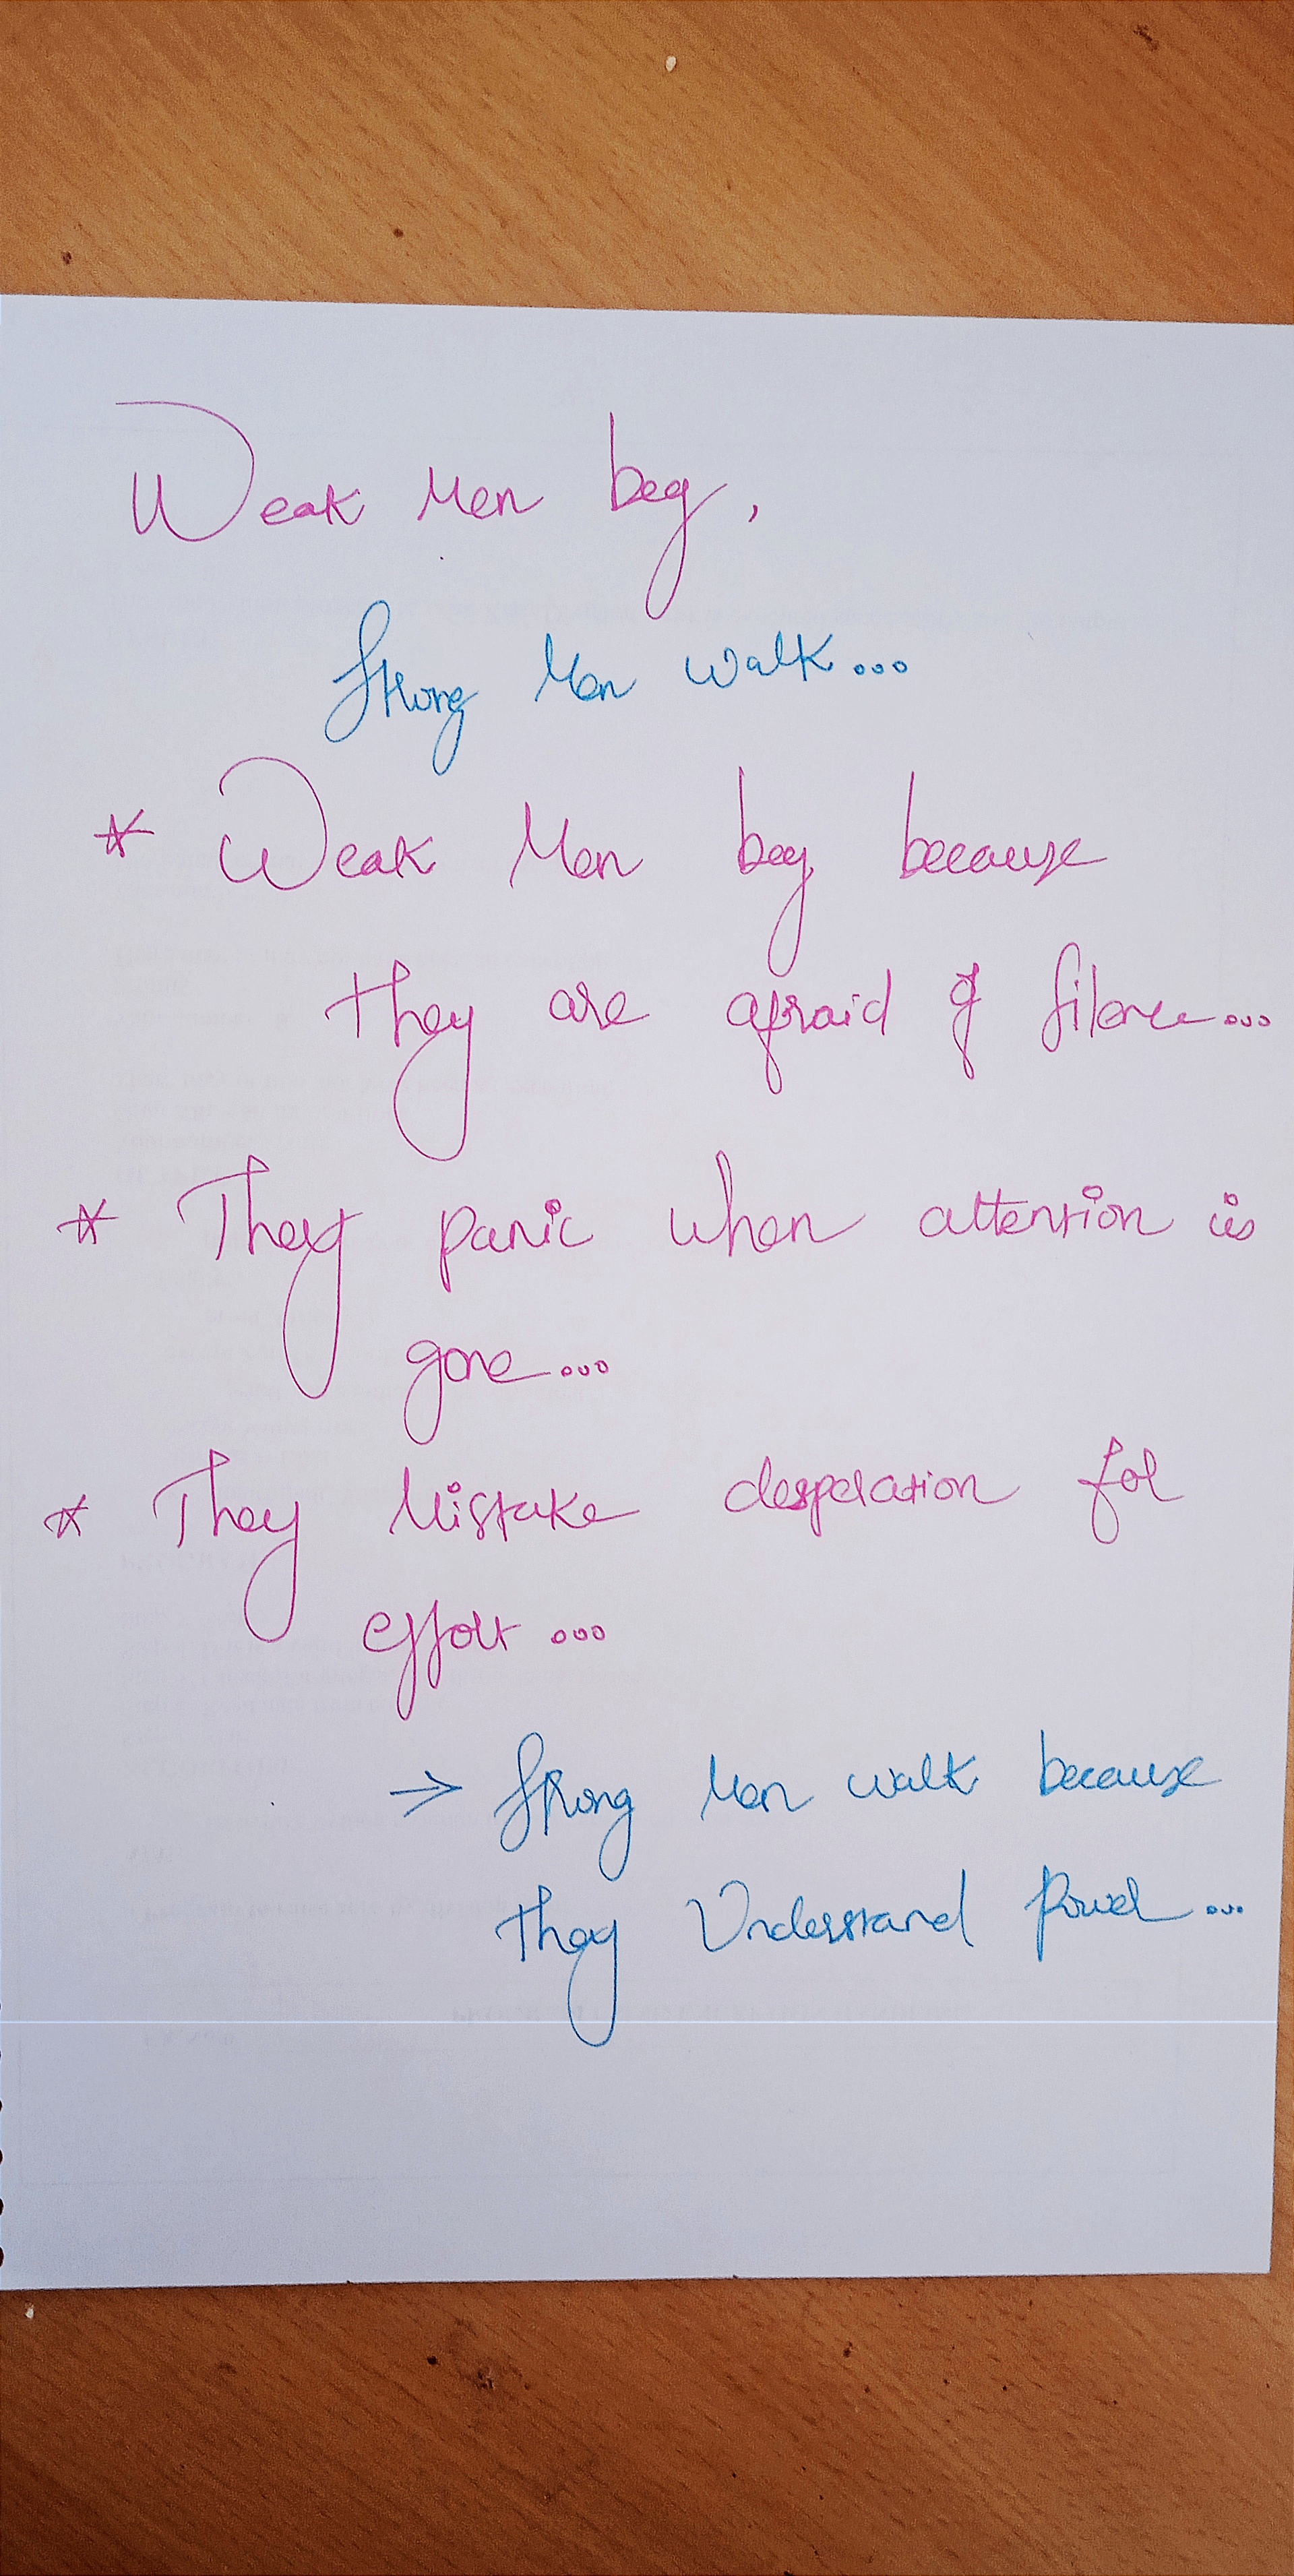 Weak Men beg,
Strong Men walk...
* Weak Men beg because
they are afraid of silence...
* They panic when attention is
gone...
* They Mistake desperation for
effort...
→ Strong Men walk because
they Understand Power...